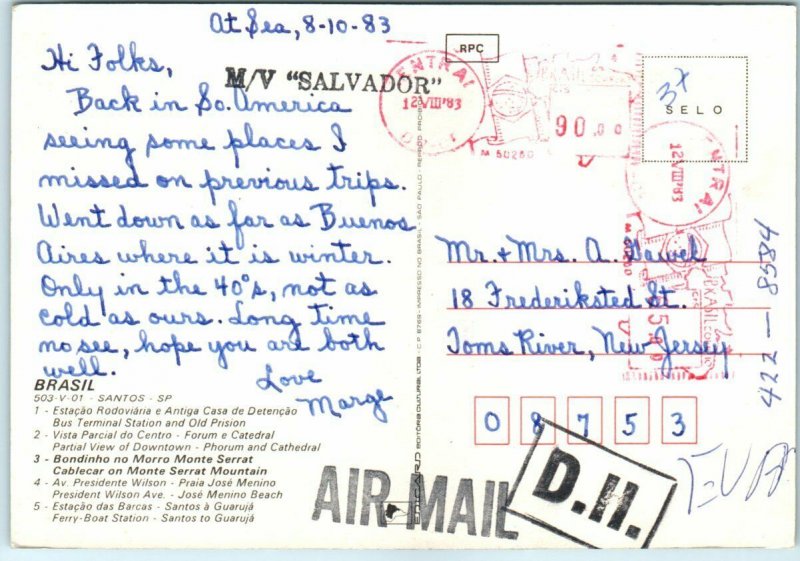 At Sea, 8-10-83
Hi Folks,
M/V "SALVADOR"
Back in So. America
seeing some places I
missed on previous trips.
Went down as far as Buenos
Aires where it is winter.
Only in the 40°s, not as
cold as ours. Long time
no see, hope you are both
well.
Love
Marge
BRASIL
503-V-01 - SANTOS - SP
1 - Estação Rodoviária e Antiga Casa de Detenção
Bus Terminal Station and Old Prision
2 - Vista Parcial do Centro - Forum e Catedral
Partial View of Downtown - Phorum and Cathedral
3 - Bondinho no Morro Monte Serrat
Cablecar on Monte Serrat Mountain
4 - Av. Presidente Wilson - Praia José Menino
President Wilson Ave. - José Menino Beach
5 - Estação das Barcas - Santos à Guarujá
Ferry-Boat Station - Santos to Guarujá
EDICARD EDITORA CULTURAL LTDA
IMPRESSO NO BRASIL
SÃO PAULO
RPC
12 VIII '83
BRASIL
90.00
M 50260
SELO
12 VIII '83
BRASIL
Mr. + Mrs. A. Gawel
18 Frederiksted St.
Toms River, New Jersey
08753
422-8584
AIR MAIL
D.H.